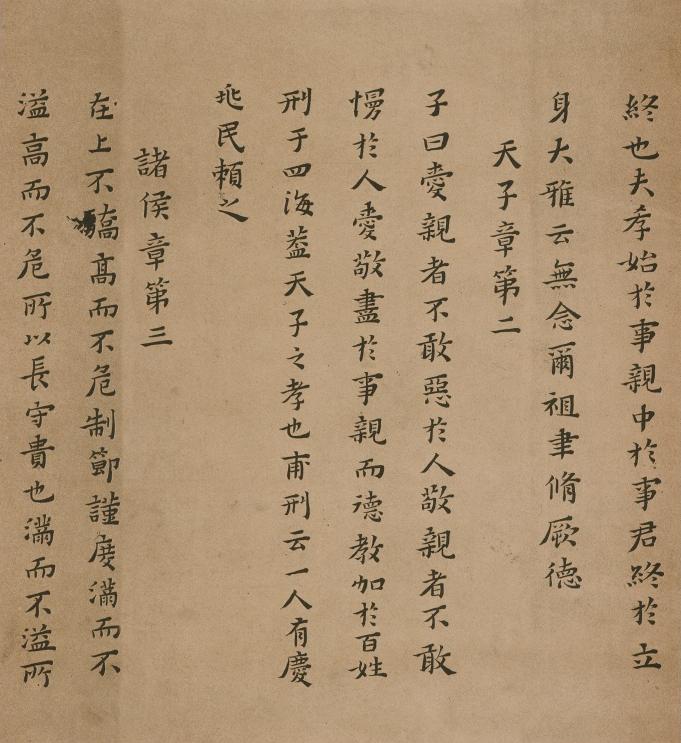 終也夫孝始於事親中於事君終於立
身大雅云無念爾祖聿脩厥德
天子章第二
子曰愛親者不敢惡於人敬親者不敢
慢於人愛敬盡於事親而德教加於百姓
刑于四海蓋天子之孝也甫刑云一人有慶
兆民賴之
諸侯章第三
在上不驕高而不危制節謹度滿而不
溢高而不危所以長守貴也滿而不溢所